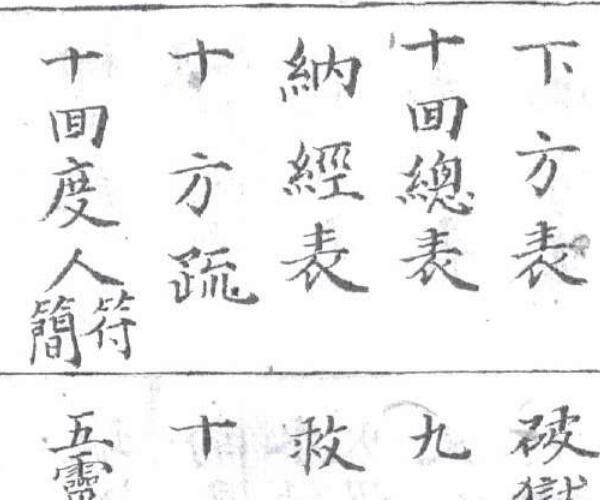 下方表
十回總表
納經表
十方疏
十回度人符簡
破獄
九
救
十
五靈